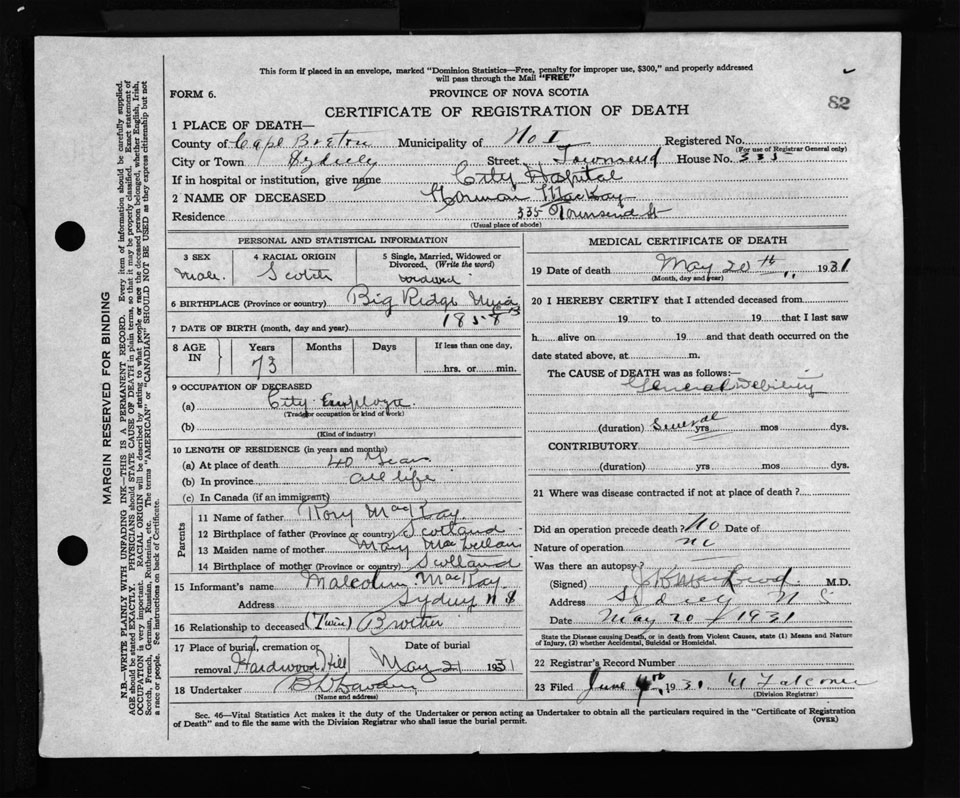 This form if placed in an envelope, marked "Dominion Statistics—Free, penalty for improper use, $300," and properly addressed
will pass through the Mail "FREE"
FORM 6.
PROVINCE OF NOVA SCOTIA
82
CERTIFICATE OF REGISTRATION OF DEATH
1 PLACE OF DEATH—
County of Cape Breton Municipality of No I Registered No.
(For use of Registrar General only)
City or Town Sydney Street Townsend House No. 335
If in hospital or institution, give name City Hospital
2 NAME OF DECEASED Norman MacKay
Residence 335 Townsend St
(Usual place of abode)
PERSONAL AND STATISTICAL INFORMATION
3 SEX
Male.
4 RACIAL ORIGIN
Scotch
5 Single, Married, Widowed or Divorced. (Write the word)
widowed
6 BIRTHPLACE (Province or country) Big Ridge Mira CB
7 DATE OF BIRTH (month, day and year) 1858
8 AGE IN
Years
73
Months
Days
If less than one day,
hrs. or min.
9 OCCUPATION OF DECEASED
(a) City Employee
(Trade or occupation or kind of work)
(b)
(Kind of industry)
10 LENGTH OF RESIDENCE (in years and months)
(a) At place of death 40 Years
(b) In province All life
(c) In Canada (if an immigrant)
Parents
11 Name of father Rory MacKay
12 Birthplace of father (Province or country) Scotland
13 Maiden name of mother Mary MacLellan
14 Birthplace of mother (Province or country) Scotland
15 Informant's name Malcolm MacKay
Address Sydney N S
16 Relationship to deceased (Twin) Brother
17 Place of burial, cremation or removal Hardwood Hill
Date of burial
May 21 1931
18 Undertaker
(Name and address)
MEDICAL CERTIFICATE OF DEATH
19 Date of death May 20th 1931
(Month, day and year)
20 I HEREBY CERTIFY that I attended deceased from
19 to 19 that I last saw
h alive on 19 and that death occurred on the
date stated above, at m.
The CAUSE of DEATH was as follows:—
General Debility
(duration) Several yrs mos dys.
CONTRIBUTORY
(duration) yrs mos dys.
21 Where was disease contracted if not at place of death?
Did an operation precede death? No Date of
Nature of operation no
Was there an autopsy?
(Signed) M.D.
Address Sydney N S
Date May 20 / 1931
State the Disease causing Death, or in death from Violent Causes, state (1) Means and Nature
of Injury, (2) whether Accidental, Suicidal or Homicidal.
22 Registrar's Record Number
23 Filed June 4th 1931 Falconer
(Division Registrar)
Sec. 46—Vital Statistics Act makes it the duty of the Undertaker or person acting as Undertaker to obtain all the particulars required in the "Certificate of Registration
of Death" and to file the same with the Division Registrar who shall issue the burial permit.
(OVER)
MARGIN RESERVED FOR BINDING
N.B.—WRITE PLAINLY WITH UNFADING INK—THIS IS A PERMANENT RECORD. Every item of information should be carefully supplied.
AGE should be stated EXACTLY. PHYSICIANS should STATE CAUSE OF DEATH in plain terms, so that it may be properly classified. Exact statement of
OCCUPATION is very important. RACIAL ORIGIN will be described by stating to what people or race the deceased person belonged, whether English, Irish,
Scotch, French, German, Russian, Ruthenian, etc. The terms "AMERICAN" or "CANADIAN" SHOULD NOT BE USED as they express citizenship but not
a race or people. See instructions on back of Certificate.